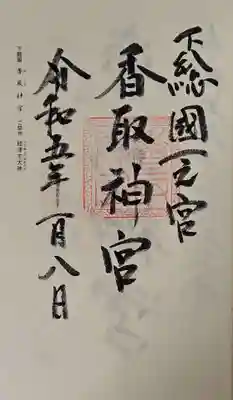 下総國一之宮
香取神宮
令和五年一月八日
下総国 香取神宮